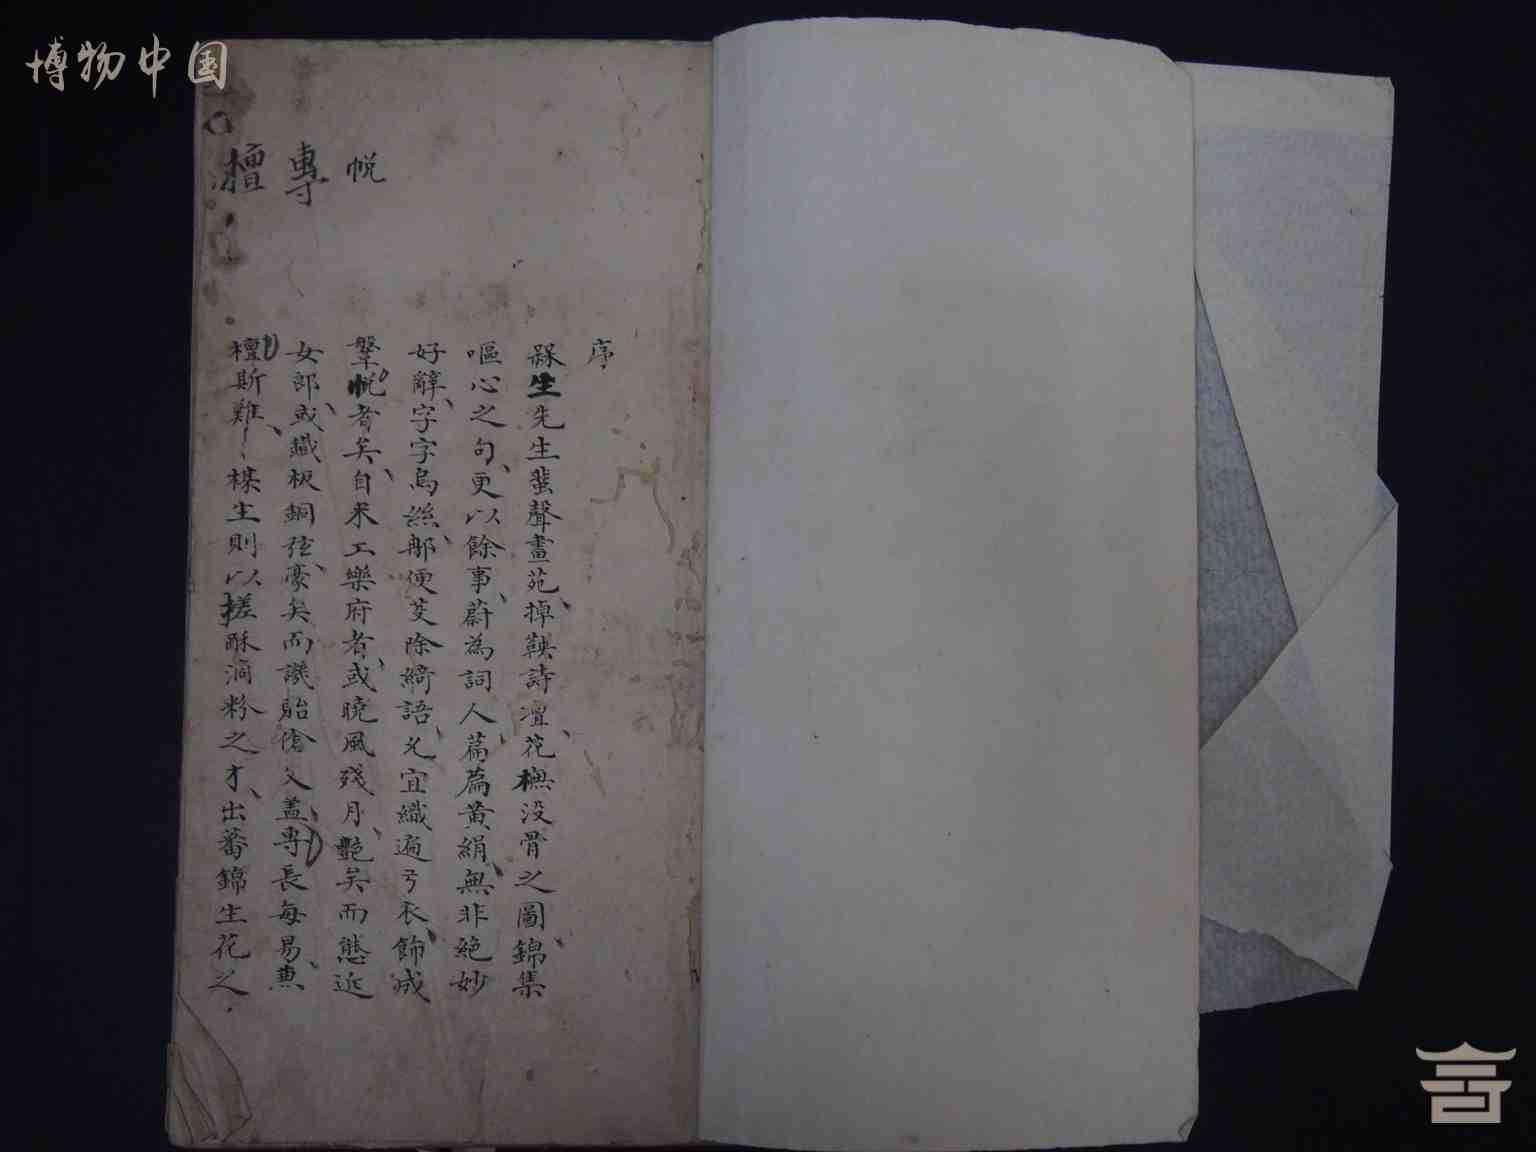 博物中国
帨
專
檀
序
槑生先生蜚聲畫苑、掉鞅詩壇、花橅没骨之圖、錦集
嘔心之句、更以餘事、蔚為詞人、篇篇黄絹、無非絶妙
好辭、字字烏絲、那便芟除綺語、尤宜織遍弓衣、飾成
鞶帨者矣、自来工樂府者、或曉風殘月、艶矣而態近
女郎、或鐵板銅弦、豪矣而譏貽傖父、蓋專長每易、兼
檀斯難、槑生則以搓酥滴粉之才、出蕃錦生花之